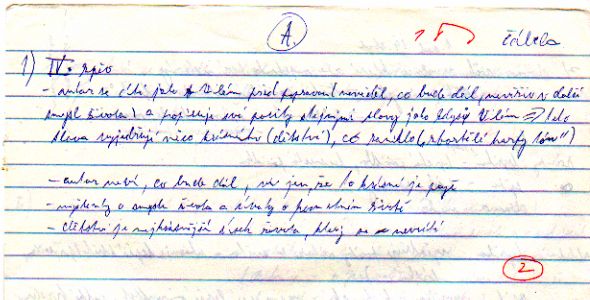 A.
1) IV. zpěv
- autor se cítí jako Vilém před popravou (neviděl, co bude dál, nevěřil v další
smysl života) a popisuje své pocity stejnými slovy jako kdysi Vilém ⇒ tato
slova vyjadřují něco krásného (dětství), co zaniklo („zbortěné harfy tón")
- autor neví, co bude dál, ví jen, že to krásné je pryč
- myšlenky o smyslu života a o životě
- dětství je nejkrásnější úsek života, který se nevrátí
2